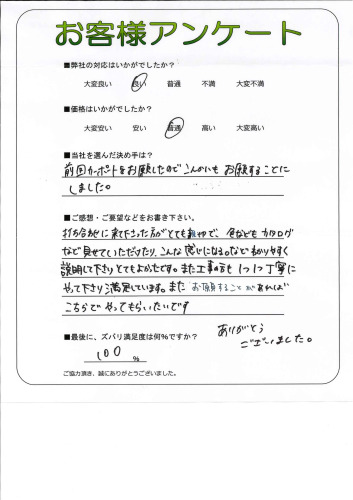 お客様アンケート
■弊社の対応はいかがでしたか?
大変良い 良い 普通 不満 大変不満
■価格はいかがでしたか?
大変安い 安い 普通 高い 大変高い
■当社を選んだ決め手は?
前回カーポートをお願したのでこんかいもお願することに
しました。
■ご感想・ご要望などをお書き下さい。
打ち合わせに来て下さった方がとても親切で、色などもカタログ
など見せていただけたり、こんな感じになる。などわかりやすく
説明して下さりとてもよかったです。また工事の方も1つ1つ丁寧に
やって下さり満足しています。また お願することがあれば
こちらでやってもらいたいです
■最後に、ズバリ満足度は何%ですか?
100 %
ありがとう
ございました。
ご協力頂き、誠にありがとうございました。